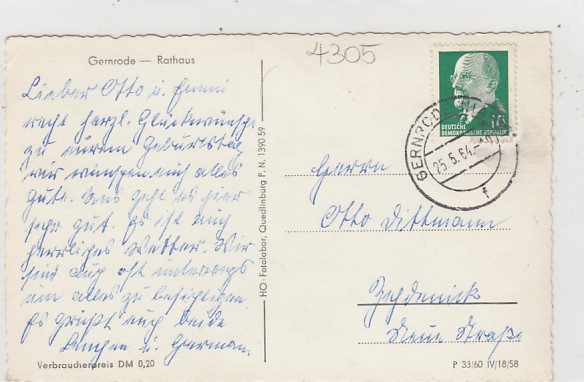 Gernrode — Rathaus
4305
Lieber Otto u. Emmi
recht herzl. Glückwünsche
zu eurem Geburtstag
wir wünschen euch alles
Gute. Uns geht es hier
sehr gut. Es ist auch
herrliches Wetter. Wir
sind auch oft unterwegs
um alles zu besichtigen.
Es grüßt euch beide
u. Herman
Verbraucherpreis DM 0,20
HO - Fotolabor, Quedlinburg P. N. 1390 59
10
DEUTSCHE
DEMOKRATISCHE REPUBLIK
GERNRODE
25.5.64
f
Herrn
Otto Dittmann
Zehdenick
Neue Straße
P 33/60 IV/18/58